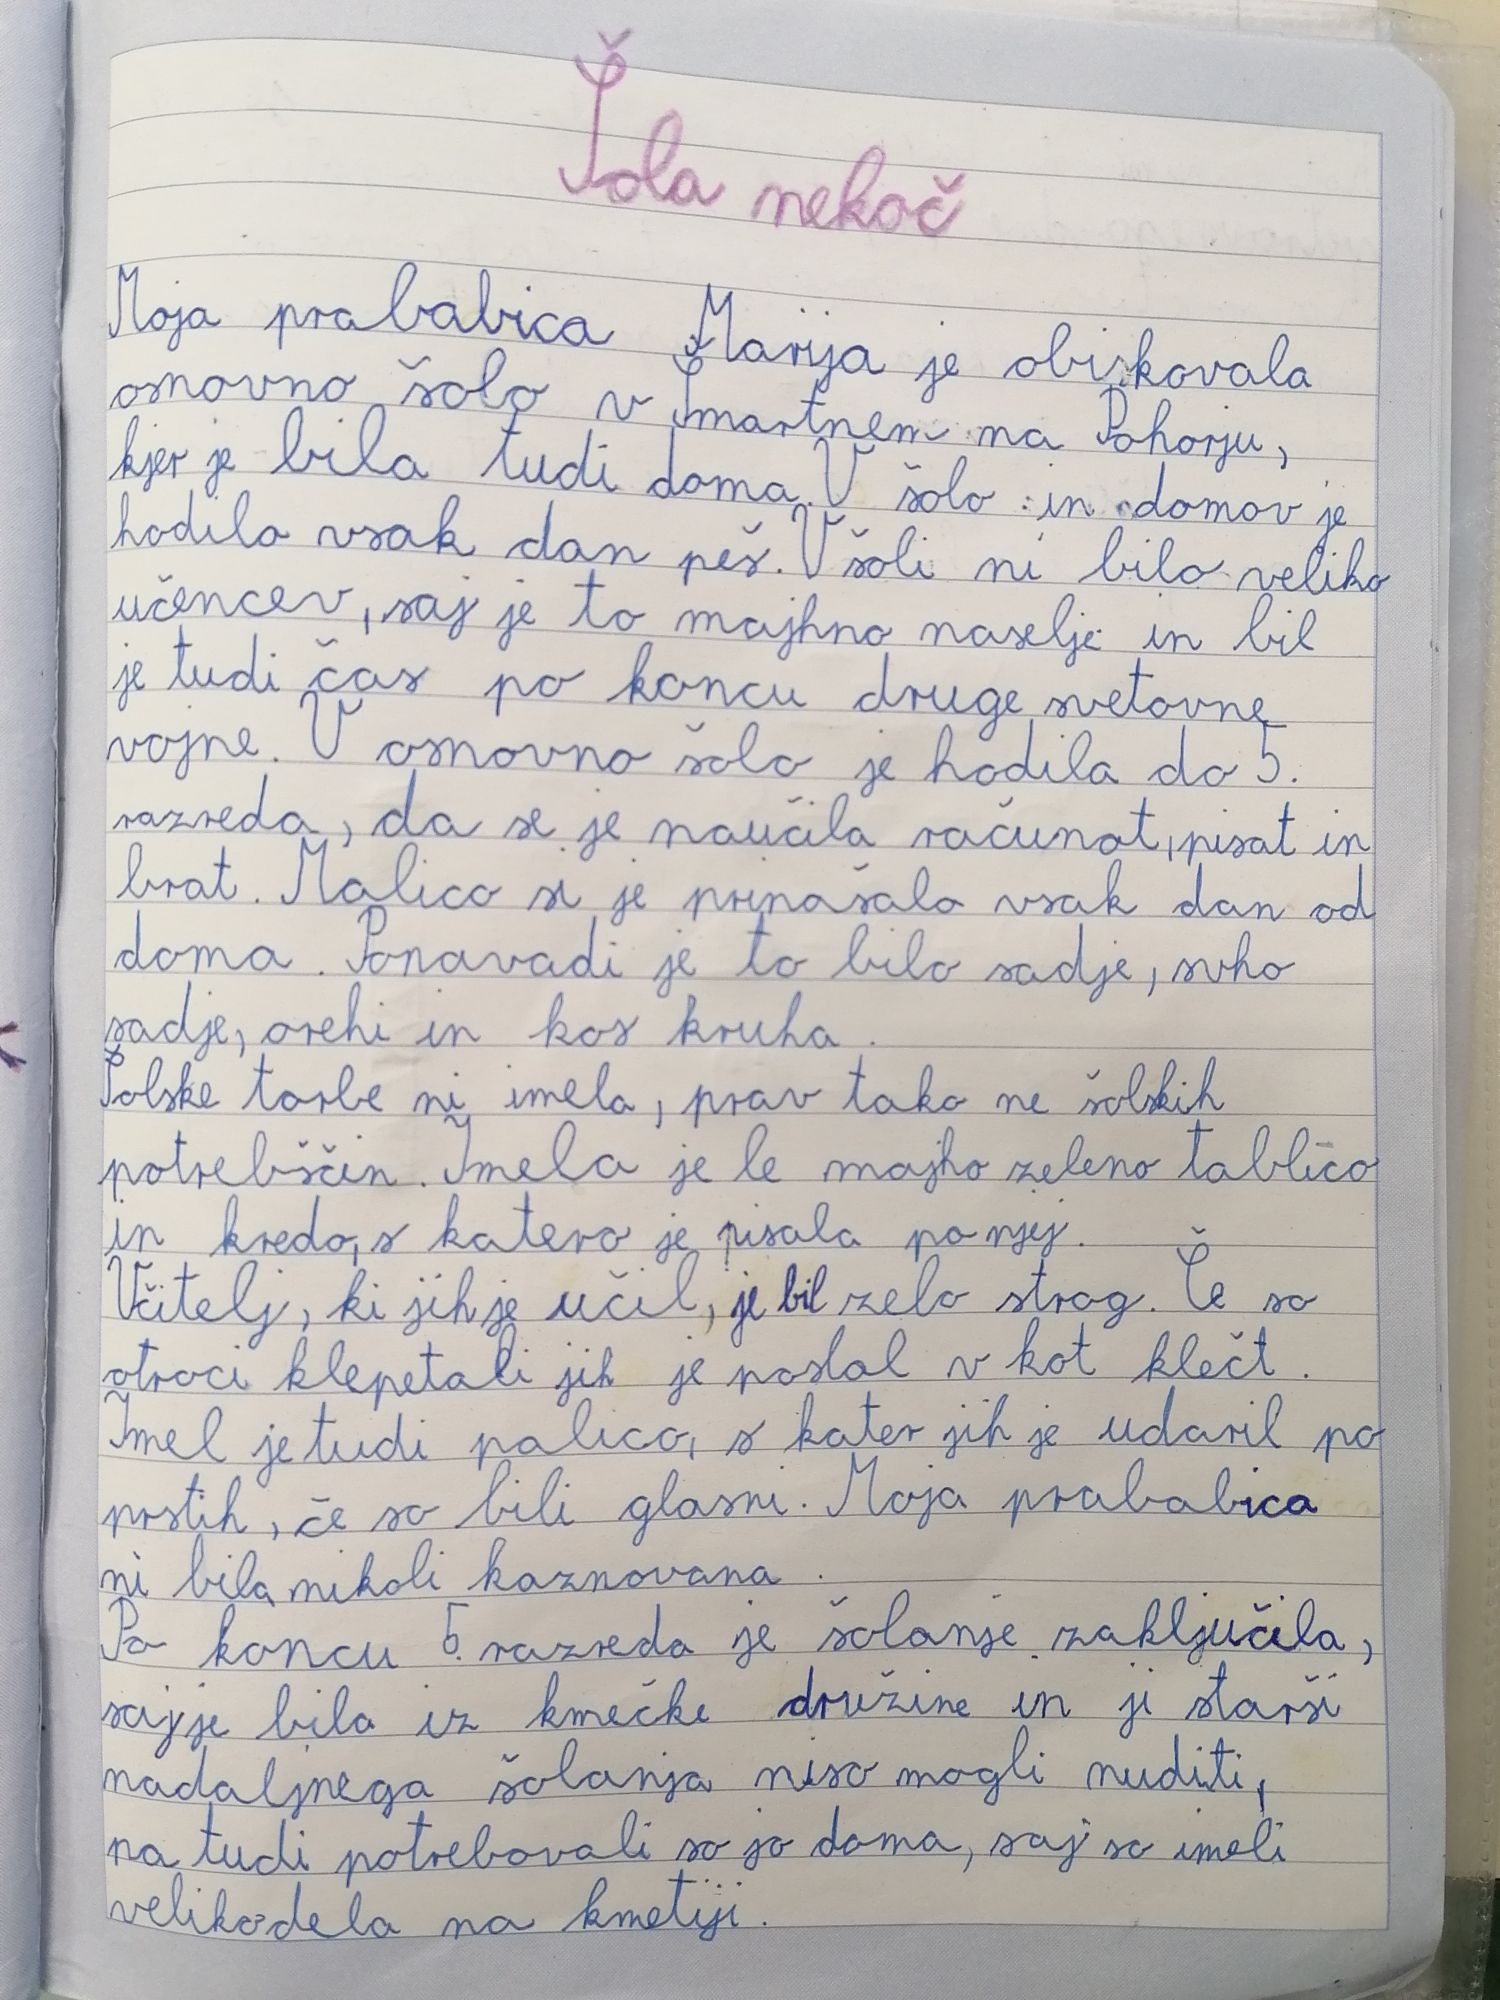 Šola nekoč
Moja prababica Marija je obiskovala
osnovno šolo v Šmartnem na Pohorju,
kjer je bila tudi doma. V šolo in domov je
hodila vsak dan peš. V šoli ni bilo veliko
učencev, saj je to majhno naselje in bil
je tudi čas po koncu druge svetovne
vojne. V osnovno šolo je hodila do 5.
razreda, da se je naučila računat, pisat in
brat. Malico si je prinašala vsak dan od
doma. Ponavadi je to bilo sadje, suho
sadje, orehi in kos kruha.
Šolske torbe ni imela, prav tako ne šolskih
potrebščin. Imela je le majho zeleno tablico
in kredo, s katero je pisala po njej.
Učitelj, ki jih je učil, je bil zelo strog. Če so
otroci klepetali jih je poslal v kot klečt.
Imel je tudi palico, s kater jih je udaril po
prstih, če so bili glasni. Moja prababica
ni bila nikoli kaznovana.
Po koncu 5. razreda je šolanje zaključila,
saj je bila iz kmečke družine in ji starši
nadaljnega šolanja niso mogli nuditi,
na tudi potrebovali so jo doma, saj so imeli
veliko dela na kmetiji.